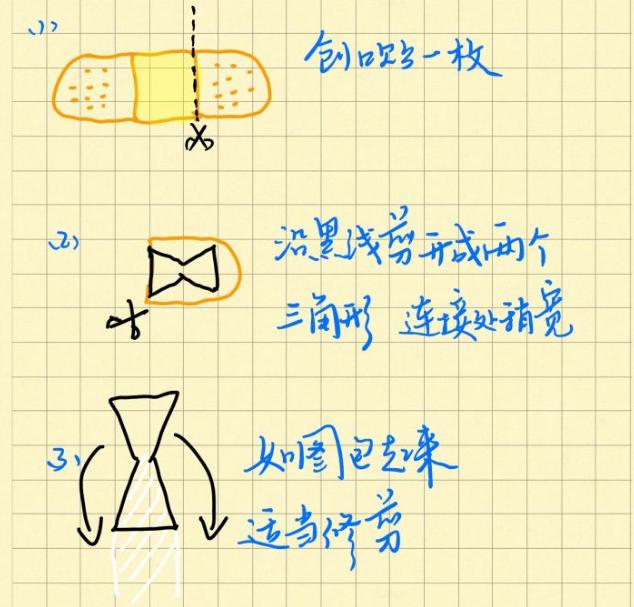 (1)
创口贴一枚
(2)
沿黑线剪开成两个
三角形 连接处稍宽
(3)
如图包起来
适当修剪